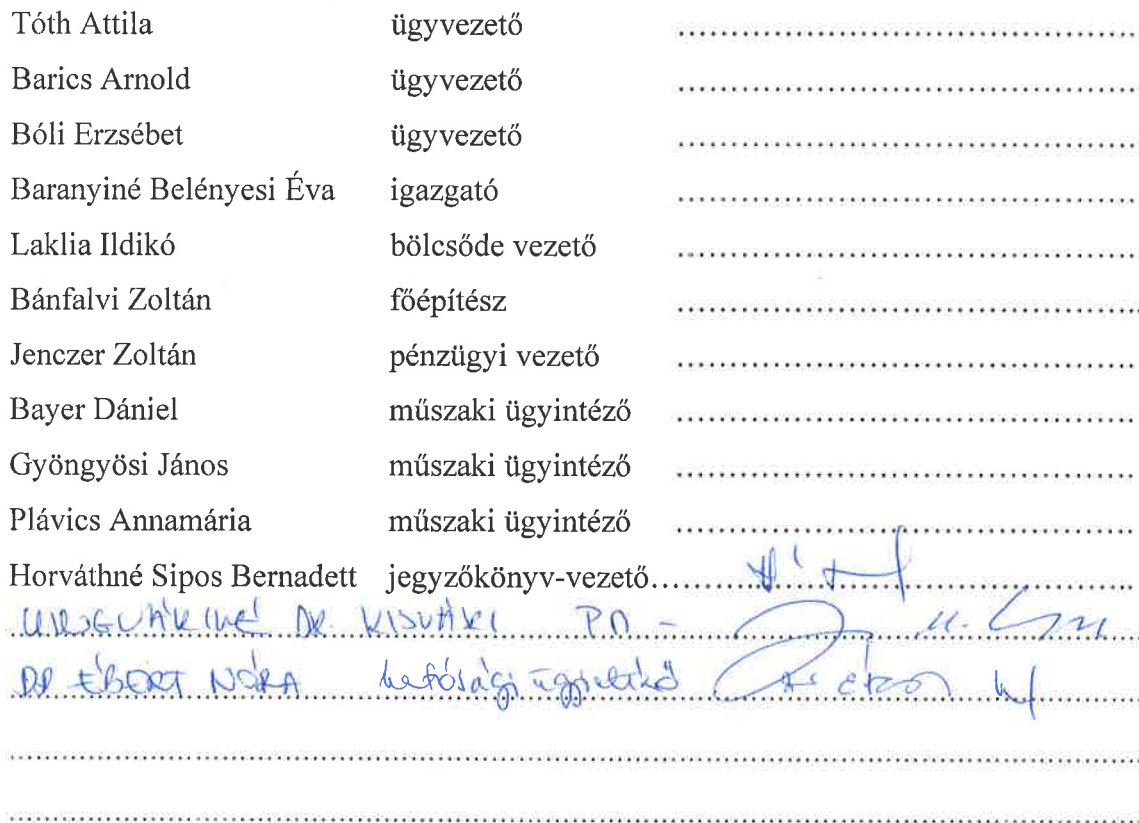 Tóth Attila ügyvezető ........................................
Barics Arnold ügyvezető ........................................
Bóli Erzsébet ügyvezető ........................................
Baranyiné Belényesi Éva igazgató ........................................
Laklia Ildikó bölcsőde vezető ........................................
Bánfalvi Zoltán főépítész ........................................
Jenczer Zoltán pénzügyi vezető ........................................
Bayer Dániel műszaki ügyintéző ........................................
Gyöngyösi János műszaki ügyintéző ........................................
Plávics Annamária műszaki ügyintéző ........................................
Horváthné Sipos Bernadett jegyzőkönyv-vezető........................................
DR. KISVÁRI
DR ÉBERT NÓRA hatósági ügyintéző